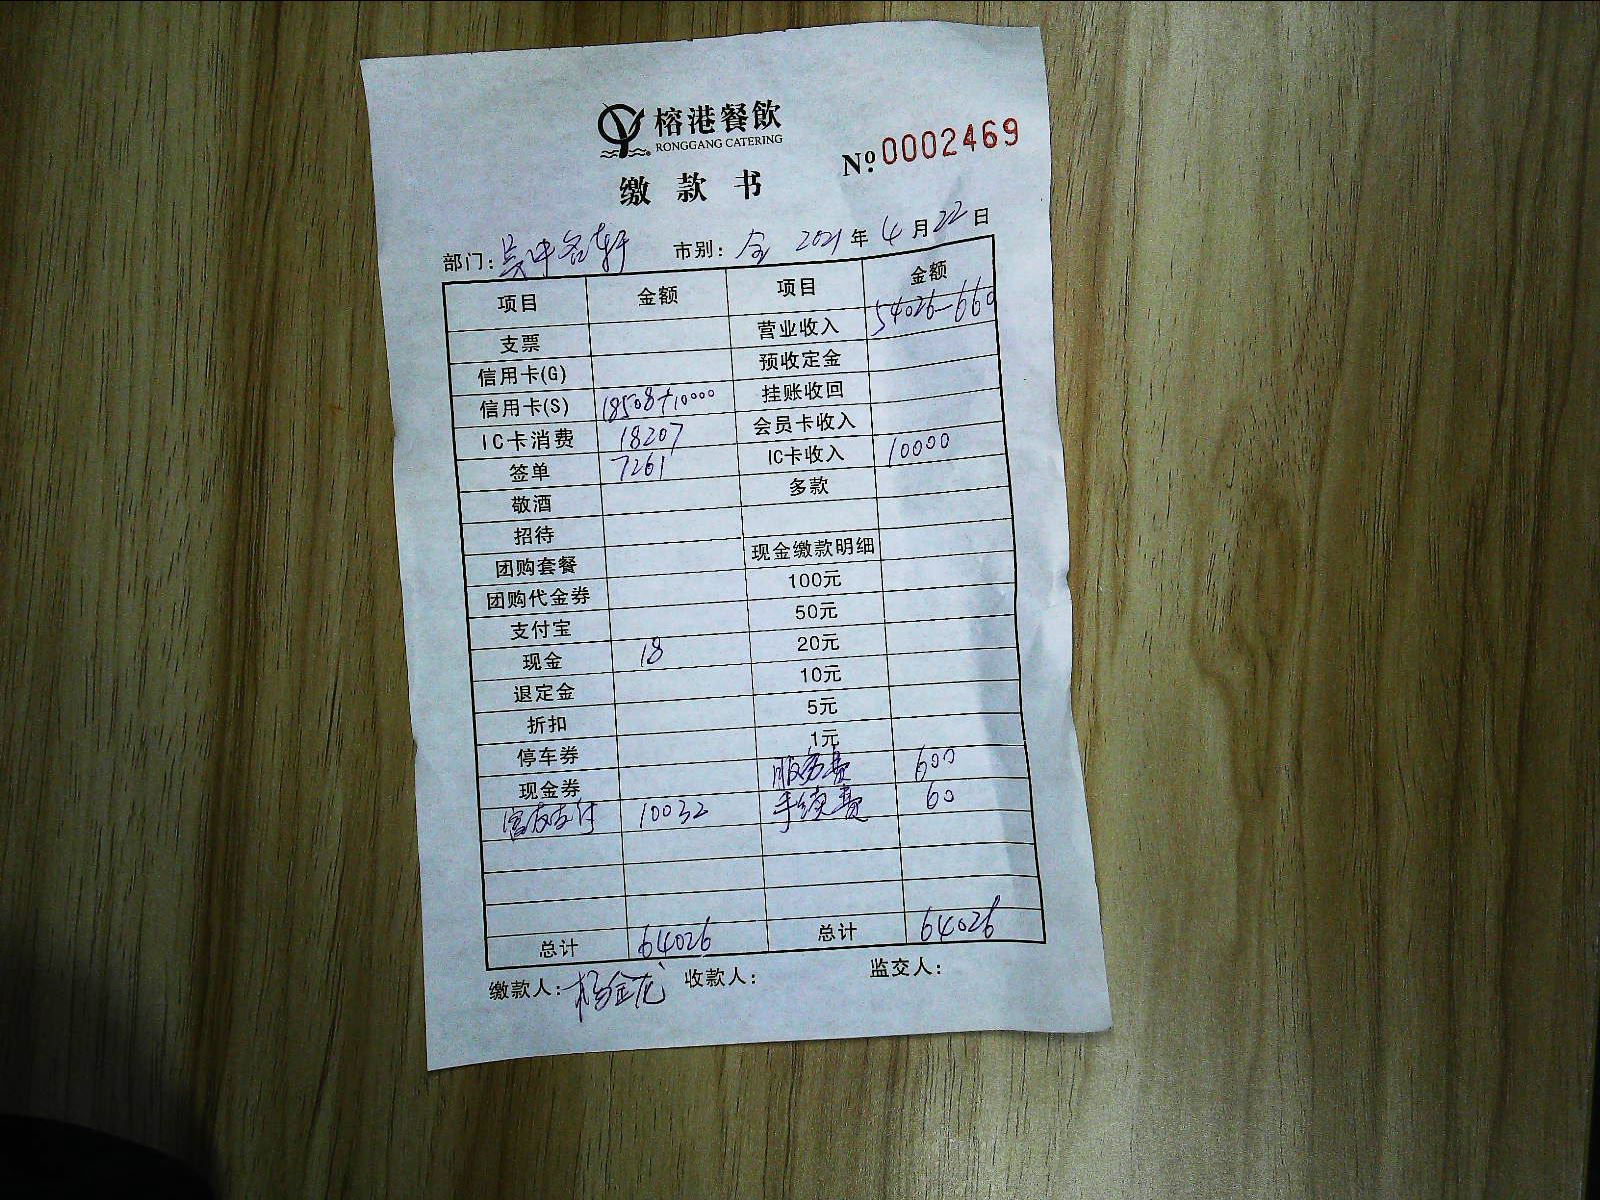 榕港餐飲
RONGGANG CATERING
№ 0002469
缴款书
部门: 吴中名轩 市别: 全 2021年4月22日
项目 金额 项目 金额
支票 营业收入 54026-660
信用卡(G) 预收定金
信用卡(S) 18508+10000 挂账收回
IC卡消费 18207 会员卡收入
签单 7261 IC卡收入 10000
敬酒 多款
招待
团购套餐 现金缴款明细
团购代金券 100元
支付宝 50元
现金 18 20元
退定金 10元
折扣 5元
停车券 1元
现金券 服务费 600
支付 10032 手续费 60
总计 64026 总计 64026
缴款人: 杨金龙 收款人: 监交人: